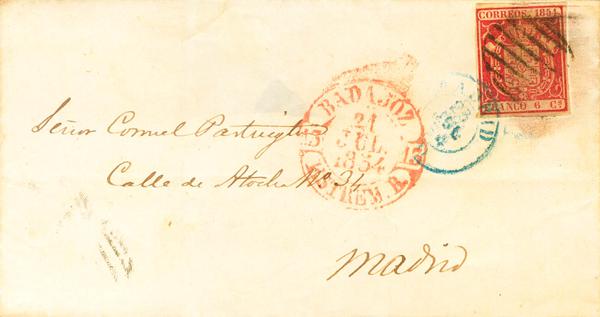 CORREOS. 1854.
FRANCO 6 Cs
BADAJOZ
21
JUL.
1854
ESTREM. B.
Señor Cornel Partington
Calle de Atocha No. 34
Madrid